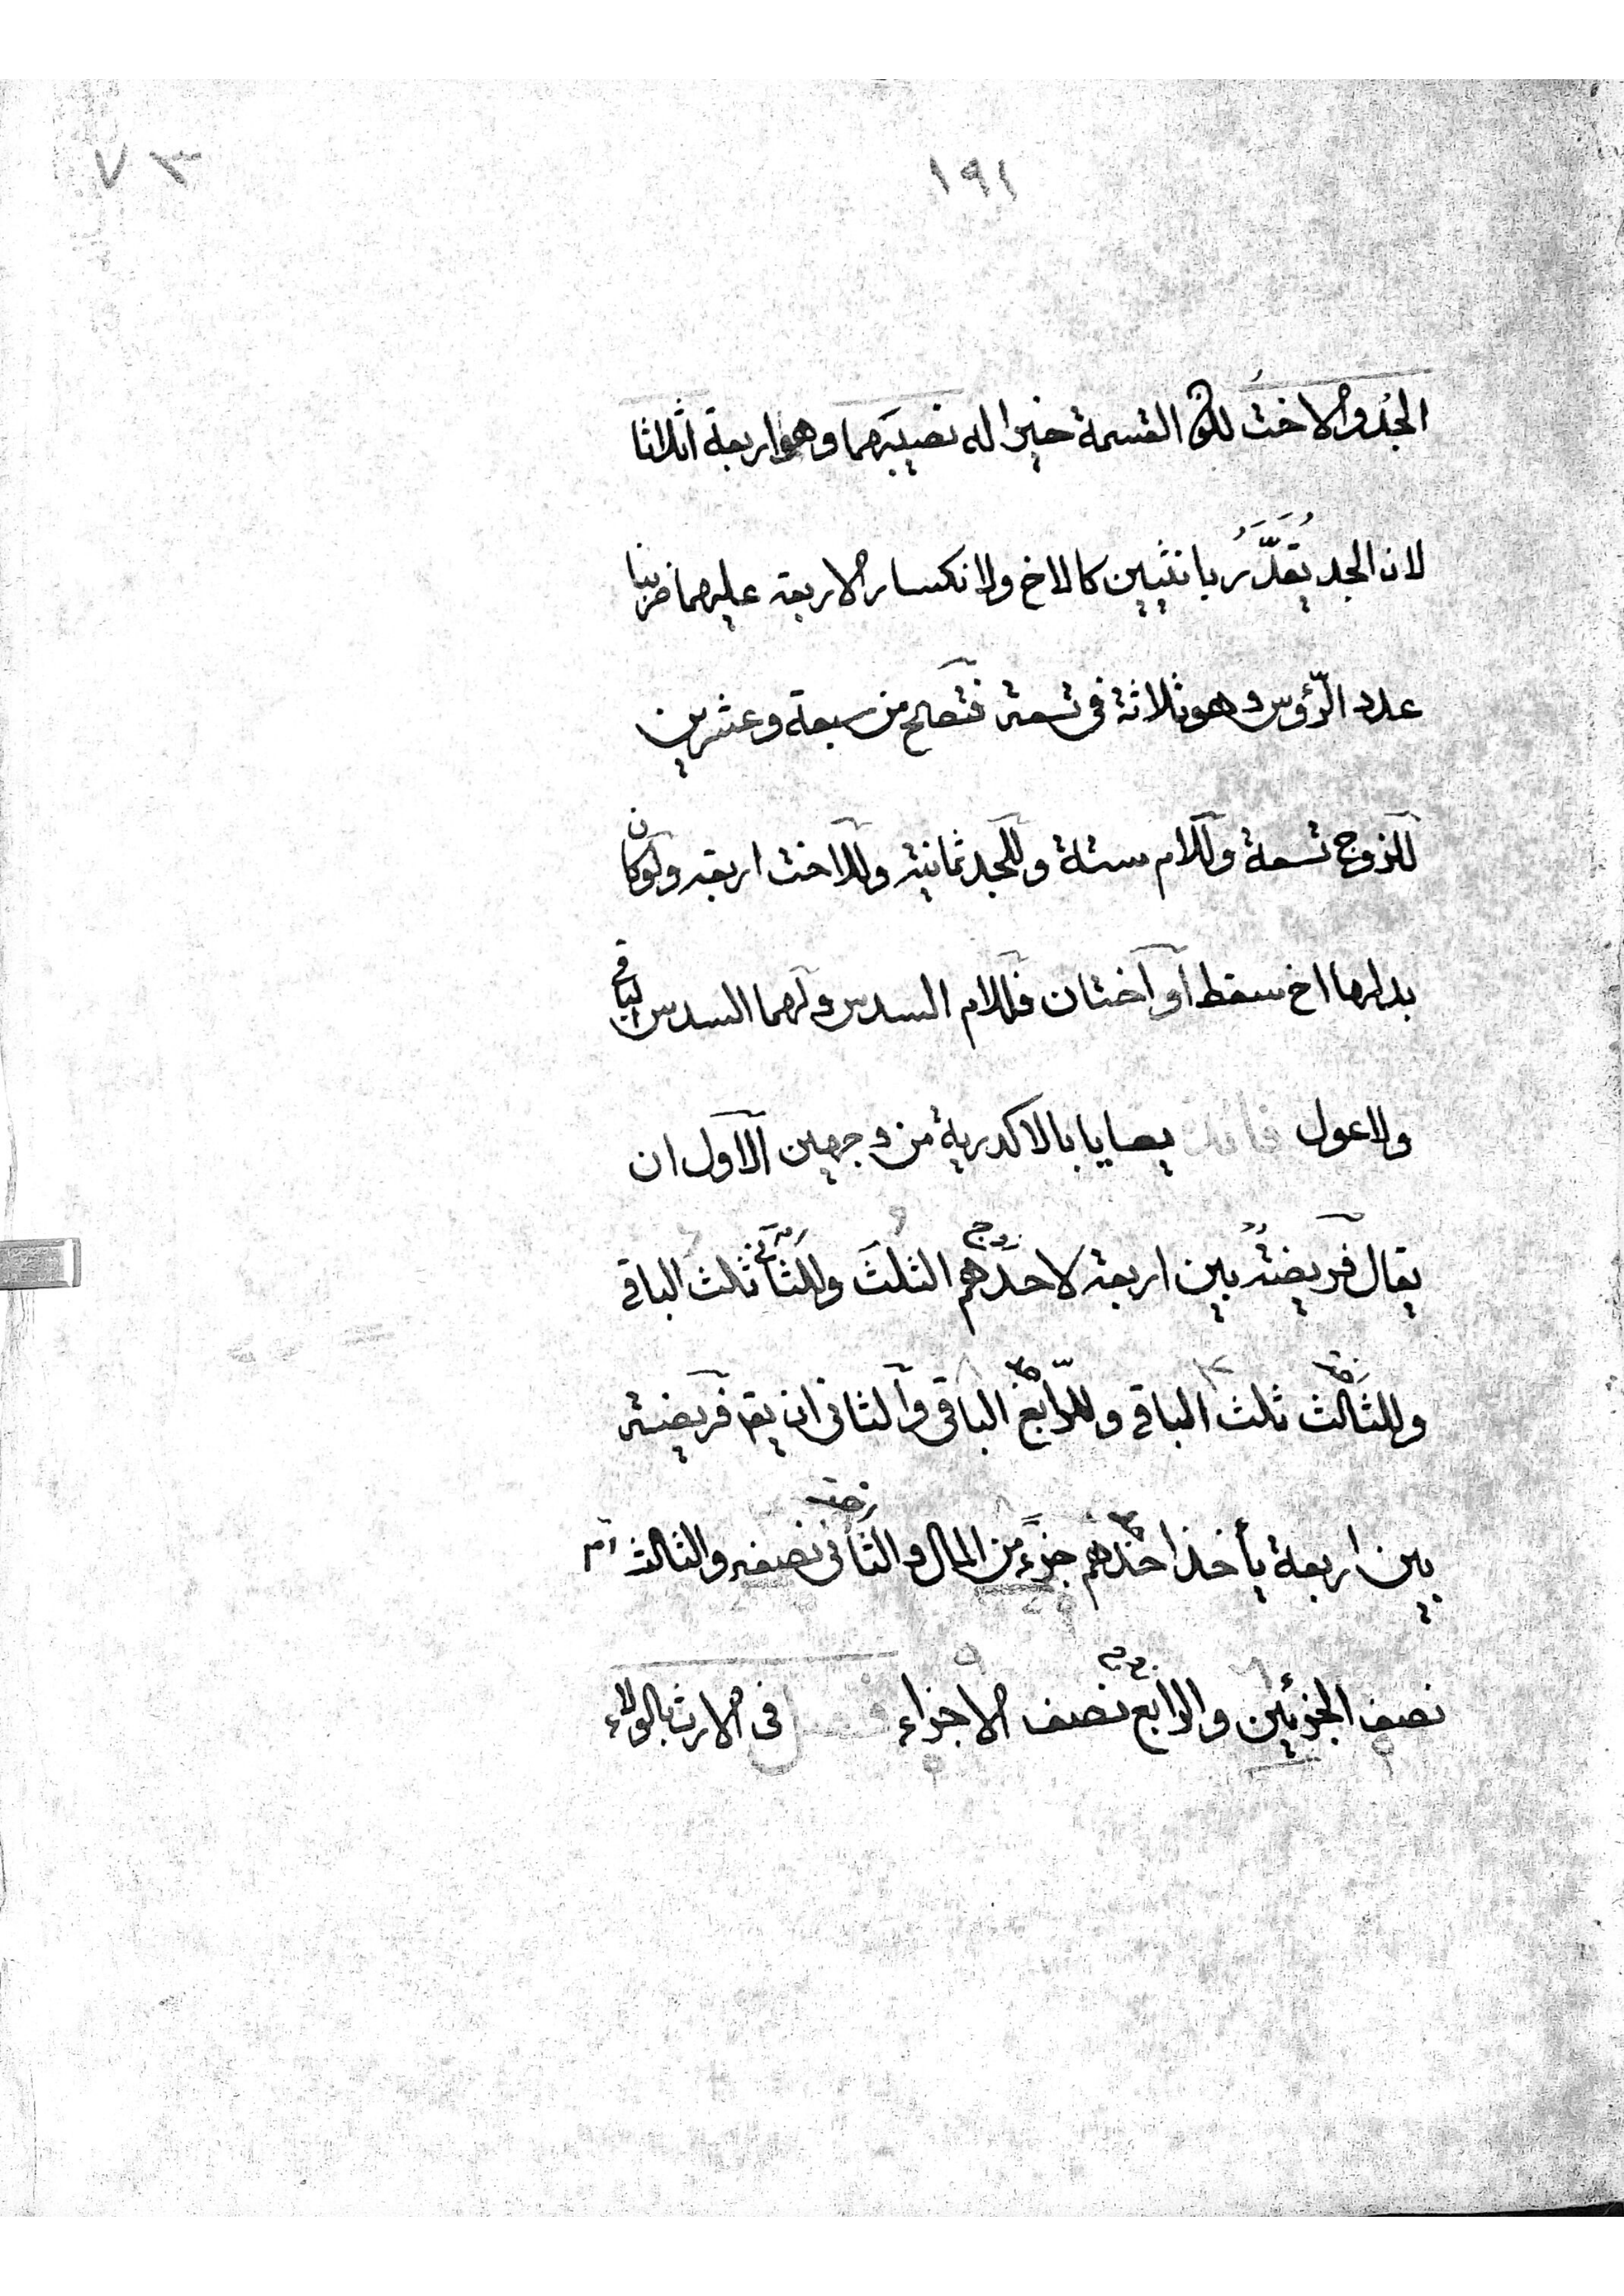 ١٩١
٧٣
الجد والاخت لكون القسمة خيرا له نصيبهما وهو اربعة اثلاثا
لان الجد يُقدَّرُ بانثيين كالاخ ولانكسار الاربعة عليهما ضربنا
عدد الرّؤس وهو ثلاثة فى تسعة فتصح من سبعة وعشرين
للزوج تسعة وللام ستة وللجد ثمانية وللاخت اربعة ولو كان
بدلها اخ سقط او اختان فللام السدس ولهما السدس الباقى
ولا عول فائدة يعايا بالاكدرية من وجهين الاول ان
يقال فريضة بين اربعة لاحدهم الثلث وللثانى ثلث الباقى
زوج
وللثالث ثلث الباقى وللرّابع الباقى والثانى ان يقم فريضة
اخت
جد
بين اربعة يأخذ احدهم جزءً من المال والثانى نصفه والثالث
اخت
جد
نصف الجزئين والرابع نصف الاجزاء فصل فى الارث بالولاء
زوج